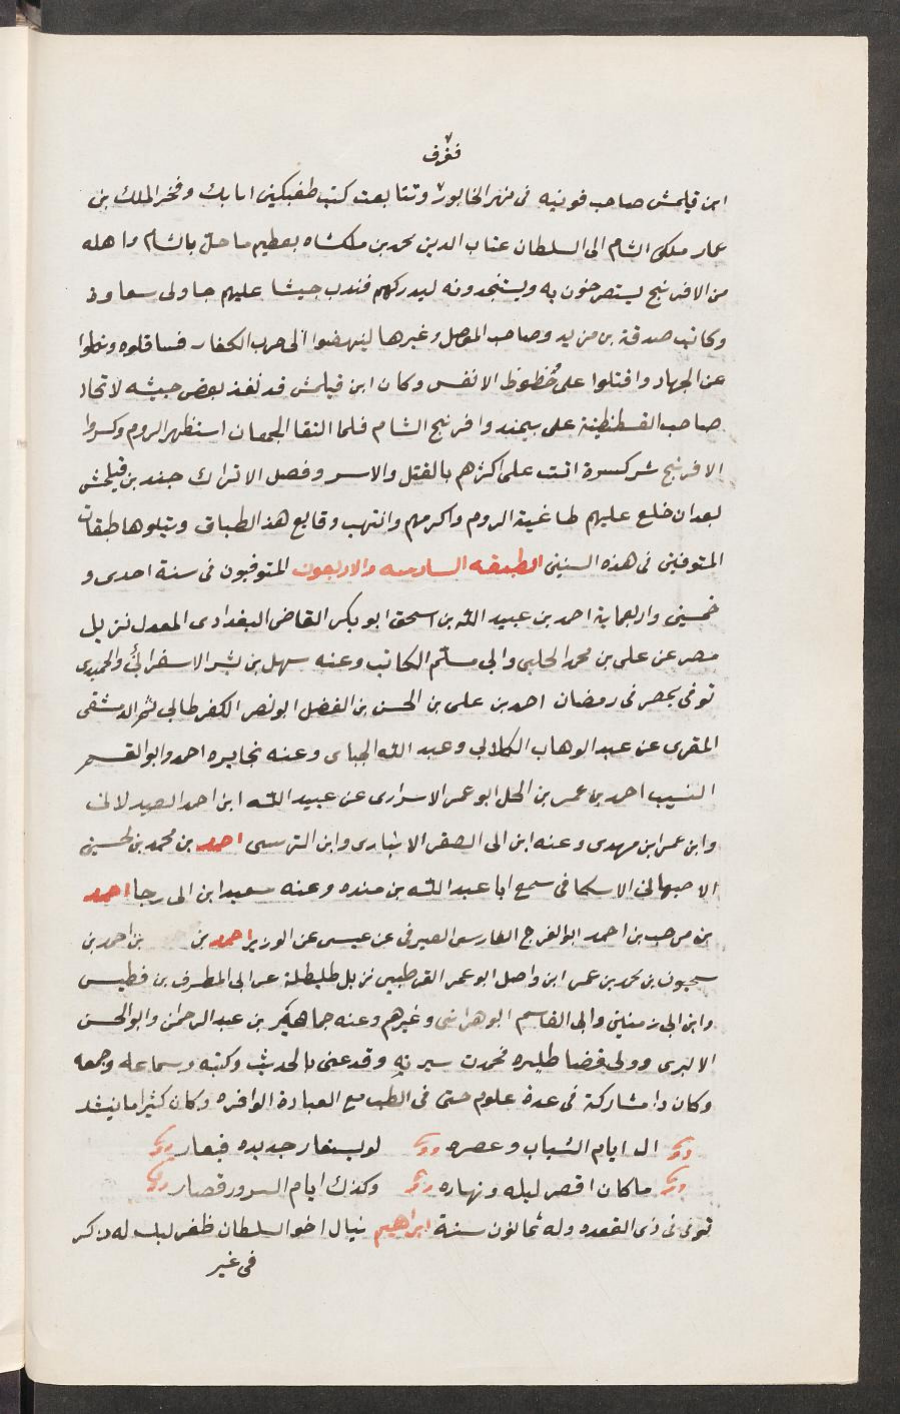 فغرف
ابن قيلمش صاحب قونيه فى نهر الخابور وتتابعت كتب طغبكين اتابك وفخر الملك بن
عمار ملكى الشام الى السلطان غياث الدين محمد بن ملكشاه بعظيم ما حل بالشام واهله
من الافرنج يستصرخون به ويستنجدونه ليدركهم فندب جيشا عليهم جاولى سقاوة
وكاتب صدقة بن مزيد وصاحب الموصل وغيرها لينهضوا الى حرب الكفار فتثاقلوه ونكلوا
عن الجهاد واقتلوا على حُظوظ الانفس وكان ابن قيلمش قد نفذ بعض جيشه لانجاد
صاحب القسطنطينة على بيمند وافرنج الشام فلما التقا الجمعان استظهر الروم وكسروا
الافرنج شر كسرة اتت على اكثرهم بالقتل والاسر وفصل الاتراك جند بن قيلمش
بعد ان خلع عليهم طاغية الروم واكرمهم وانتهت وقايع هذ الطباق ويتلوها طبقات
المتوفين فى هذه السنين الطبقه السادسه والاربعون المتوفون فى سنة احدى و
خمسين واربعماية احمد بن عبيد الله بن اسحق ابو بكر القاضى البغدادى المعدل نزيل
مصر عن على بن محمد الحلبى وابى مسلم الكاتب وعنه سهل بن بشر الاسفرائنى والحميدى
توفى بمصر فى رمضان احمد بن على بن الحسن بن الفضل ابو نصر الكفرطابى ثم الدمشقى
المقرى عن عبد الوهاب الكلابى وعبد الله الجباى وعنه نجا بره احمد وابو القسم
النسيب احمد بن عمر بن الحل ابو عمر الاسرارى عن عبيد الله ابن احمد الصيدلانى
وابن عمر ابن مهدى وعنه ابن ابى الصقر الانبارى وابن النرسى احمد بن محمد بن الحسين
الاصبهانى الاسكافى سمع ابا عبد الله بن منده وعنه سعيد ابن ابى رجا احمد
بن مرحب بن احمد ابو الفرج الفارسى الصيرفى عن عيسى عن الوزير احمد بن بن احمد بن
محمد بن عمر ابن واصل ابو عمر القرطبى نزيل طليطلة عن ابى المطرف بن فطيس
وابن ابى زمنين وابى القاسم الوهرانى وغيرهم وعنه جماهير بن عبد الرحمن وابو الحسن
الالبرى وولى قضا طلبيره فحمدت سيرته وقد عنى بالحديث وكتبه وسماعه وجمعه
وكان ذا مشاركة فى عدة علوم حتى فى الطب مع العبادة الوافره وكان كثيرا ما ينشد
ال ايام الشباب وعصره لو يستعار جديده فيعار
ما كان اقصر ليله ونهاره وكذلك ايام السرور قصار
توفى فى ذى القعده وله ثمانون سنة ابراهيم نيال اخو السلطان طغرلبك له ذكر
فى غير